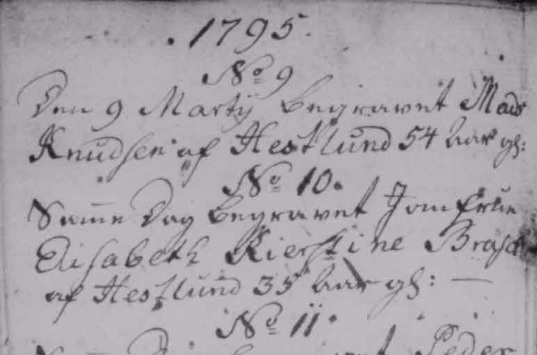 1795.
No 9
Den 9 Martij begravet Mads
Knudsen af Hestlund 54 Aar gl:
No 10.
Samme Dag begravet Jomfrue
Elisabeth Kierstine Brasch
af Hestlund 35 Aar gl: —
No 11.
begravet Peder